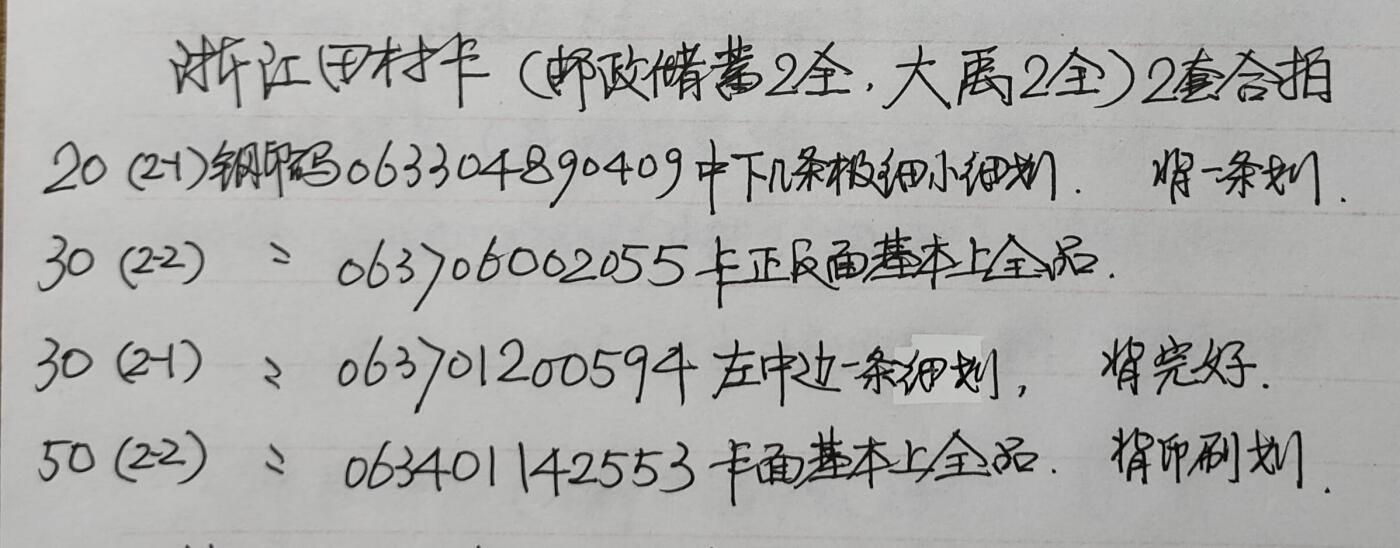 浙江田村卡（邮政储蓄2全，大禹2全）2套合拍
20（2-1）钢印码063304890409中下几条极细小细划． 背一条划．
30（2-2） 〃 063706002055卡正反面基本上全品．
30（2-1） 〃 063701200594左中边一条细划， 背完好．
50（2-2） 〃 063401142553卡面基本上全品． 背印刷划．